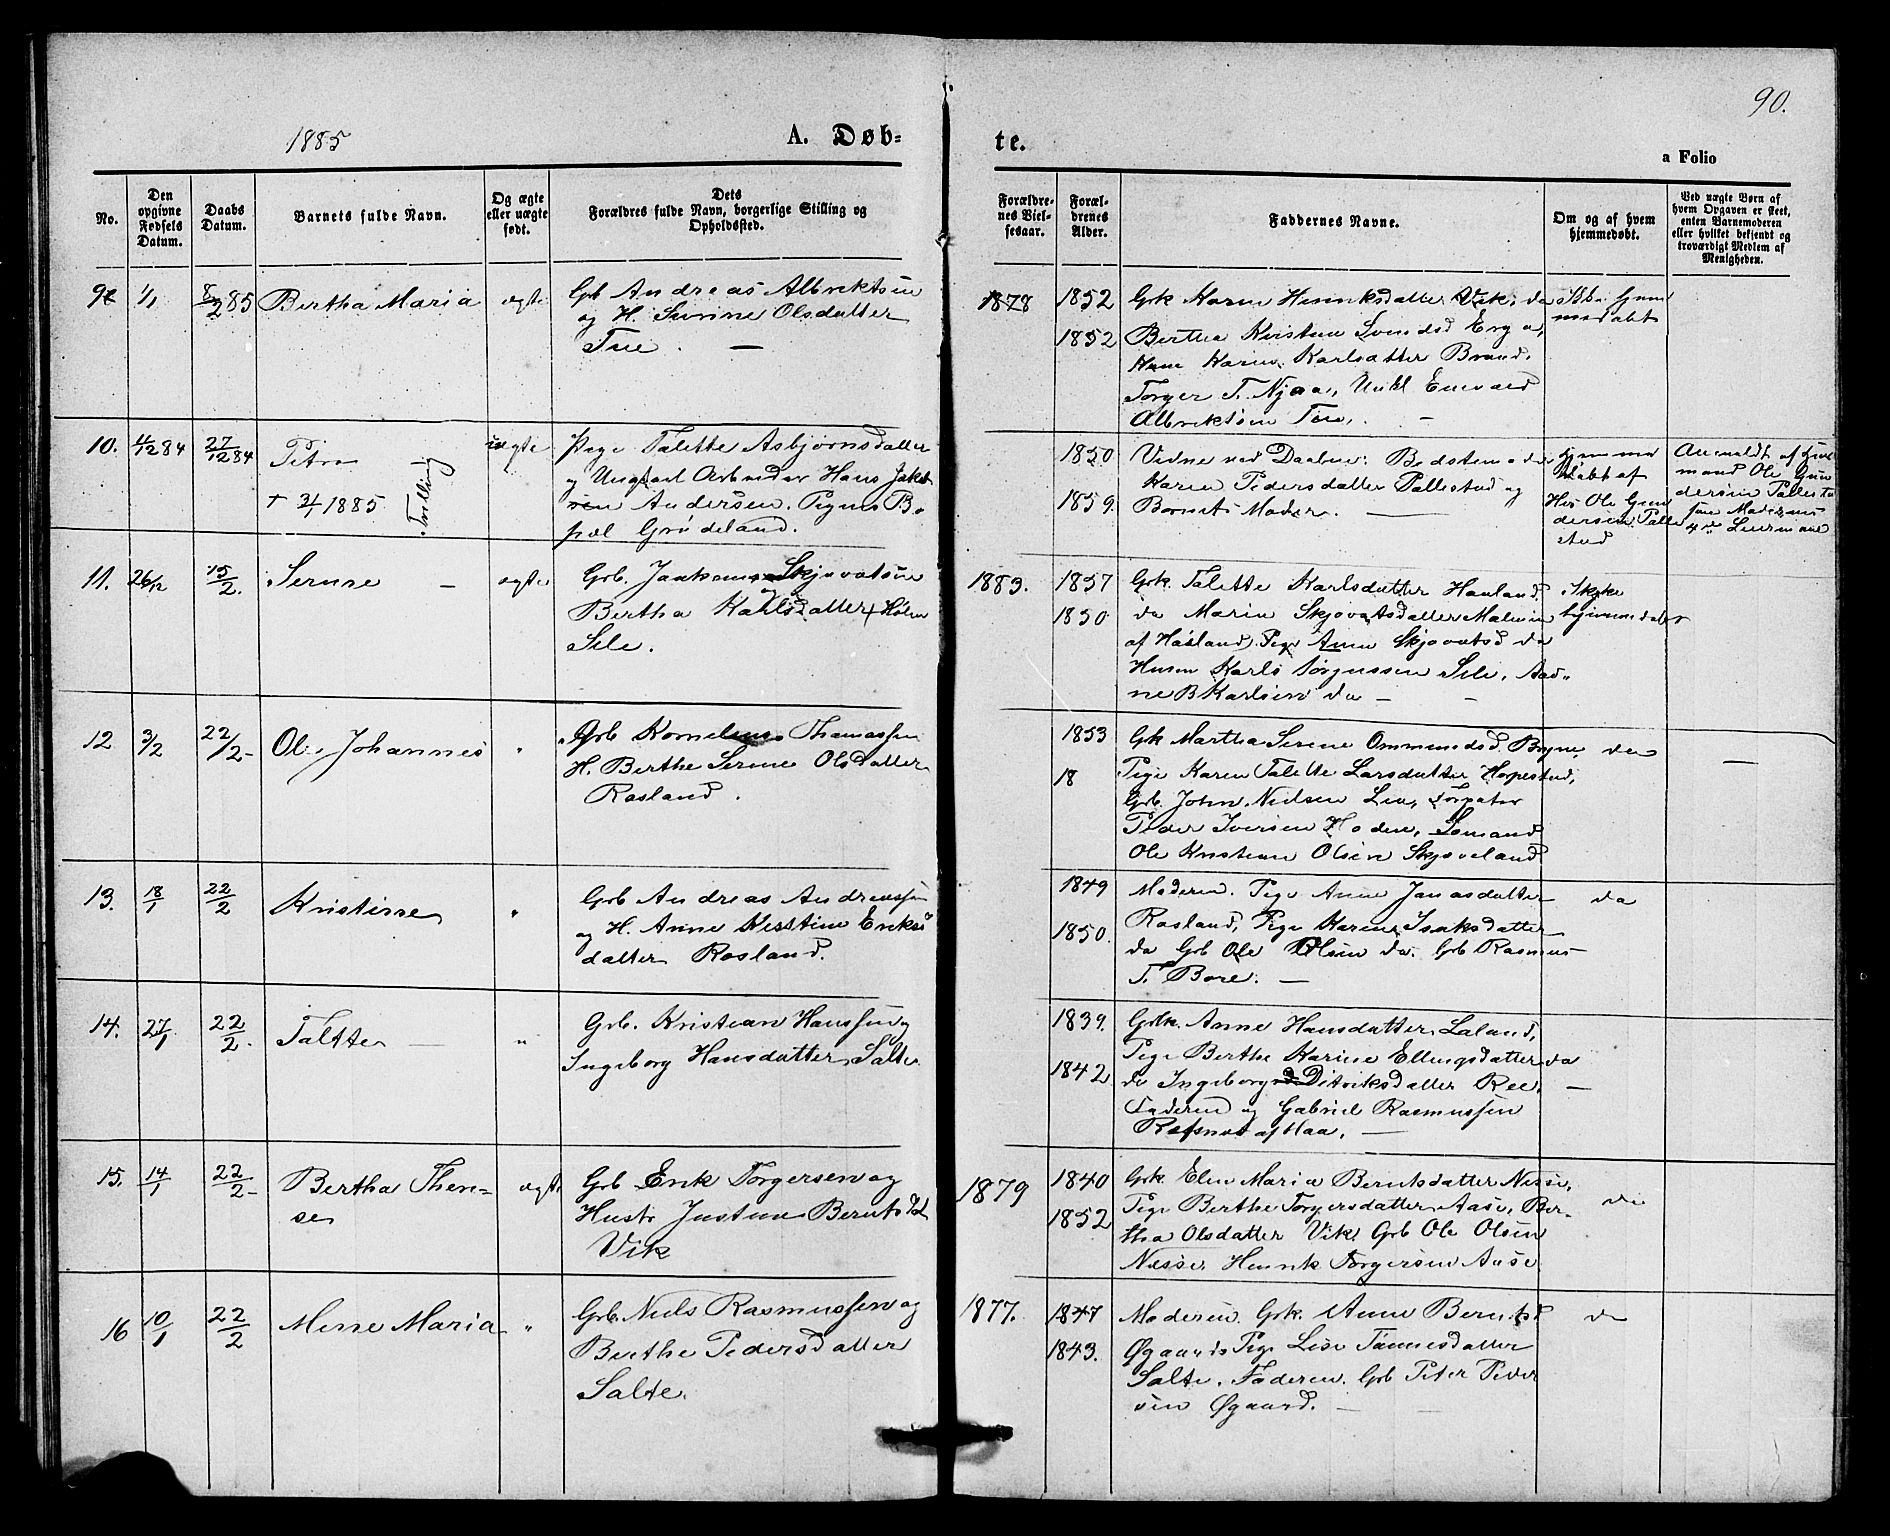 1885
A. Døb=
te.
90.
a Folio
No.
Den
opgivne
Fødsels
Datum.
Daabs
Datum.
Barnets fulde Navn.
Og ægte
eller uægte
født.
Dets
Forældres fulde Navn, borgerlige Stilling og
Opholdssted.
Forældre-
nes Viel-
sesaar.
Foræl-
drenes
Alder.
Faddernes Navne.
Om og af hvem
hjemmedøbt.
Ved uægte Børn af
hvem Opgaven er skeet,
enten Barnemoderen
eller hvilket bekjendt og
troværdigt Medlem af
Menigheden.
9 1/1 8/2 85 Bertha Maria ægte
Gb Andreas Albrektsen
og H. Serine Olsdatter
Tue. —
1878
1852
1852
Gk Karen Henriksdatter Vik, da
Bertha Kristine Svendsd
Karine Karlsdatter Braud.
Torger T. Njaa, Unkl Enevald
Albrektsen Tue, —
Ikke
10. 4/12 84 27/12 84
Petra
† 3/1 1885
Tvilling
uægte
Pige Talette Asbjørnsdatter
og Ungkarl Arbeider Hans
Andersen. Pigens
Grødeland.
1850
1859.
Vidne ved Daaben: Bedstemoder
Karen Pedersdatter Pallestad og
Barnets Moder. —
Hjemme
døbt af
Ole Gun
dersen Palle
stad
Anmeldt af
mand Ole Gun
dersen
Moderens
11. 26/12 15/2. Serine — ægte
Grb. Skjævatsen
Bertha Karlsdatter
Sele.
1883.
1857
1850
Grk. Talette Karlsdatter Hauland
da Marin Skjævatsdatter
af Haaland. Pige Anne Skjævatsd da
Karls Sele, Aad-
ne B Karlsen da —
Ikke
12 3/2 22/2 Ole Johannes "
Grb Kornelius Thomassen
H. Berthe Serine Olsdatter
Rosland.
1853
18
Gk Martha Serene Ommundsd. Bryne,
Pige Karen Talette Larsdatter Horpestad,
Grb. John Nielsen Lie,
Peder Iversen Hodne, Sømand
Ole Kristian Olsen Skjæveland
da
—
13. 18/1 22/2 Kristine "
Grb Andreas Andreassen
og H. Anne Kirstine Eriks
datter Rosland.
1849
1850.
Moderen. Pige Anne Jonasdatter
Rosland, Pige Karine Isaksdatter
da Grb Ole Olsen da. Grb Rasmus
T. Bore. —
da
14. 27/1 22/2. Talette — "
Grb. Kristian Hanssen og
Ingeborg Hansdatter Salte
1839.
1842
Grk. Anne Hansdatter Laland,
Pige Berthe Karine Ellingsdatter
da Ingeborg Ditriksdatter Ree.
Faderen og Gabriel Rasmussen
Refsnes af Haa. —
da
—
15. 14/1 22/2 Bertha Theri-
se
ægte
Grb Erik Torgersen og
Hustr Justine Berntsdat
Vik
1879
1840
1852
Grk. Elen Maria Berntsdatter Nesse,
Pige Berthe Torgersdatter Aase, Ber-
tha Olsdatter Vik, Grb Ole Olsen
Nesse, Henrik Torgersen Aase
da
16 10/1 22/2 Merse Maria "
Grb. Niels Rasmussen og
Berthe Pedersdatter
Salte.
1877.
1847
1843.
Moderen. Grk. Anne Berntsd
Øgaard Pige Lise Tønnesdatter
Salte. Faderen. Grb Peter Peder
sen Øgaard. —
da